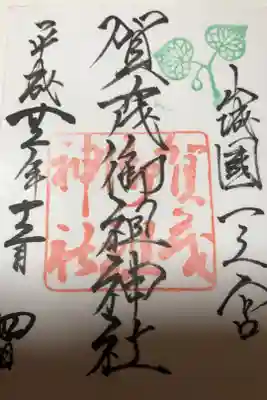 山城國一之宮
賀茂御祖神社
平成廿年十月四日
賀茂
御祖
神社